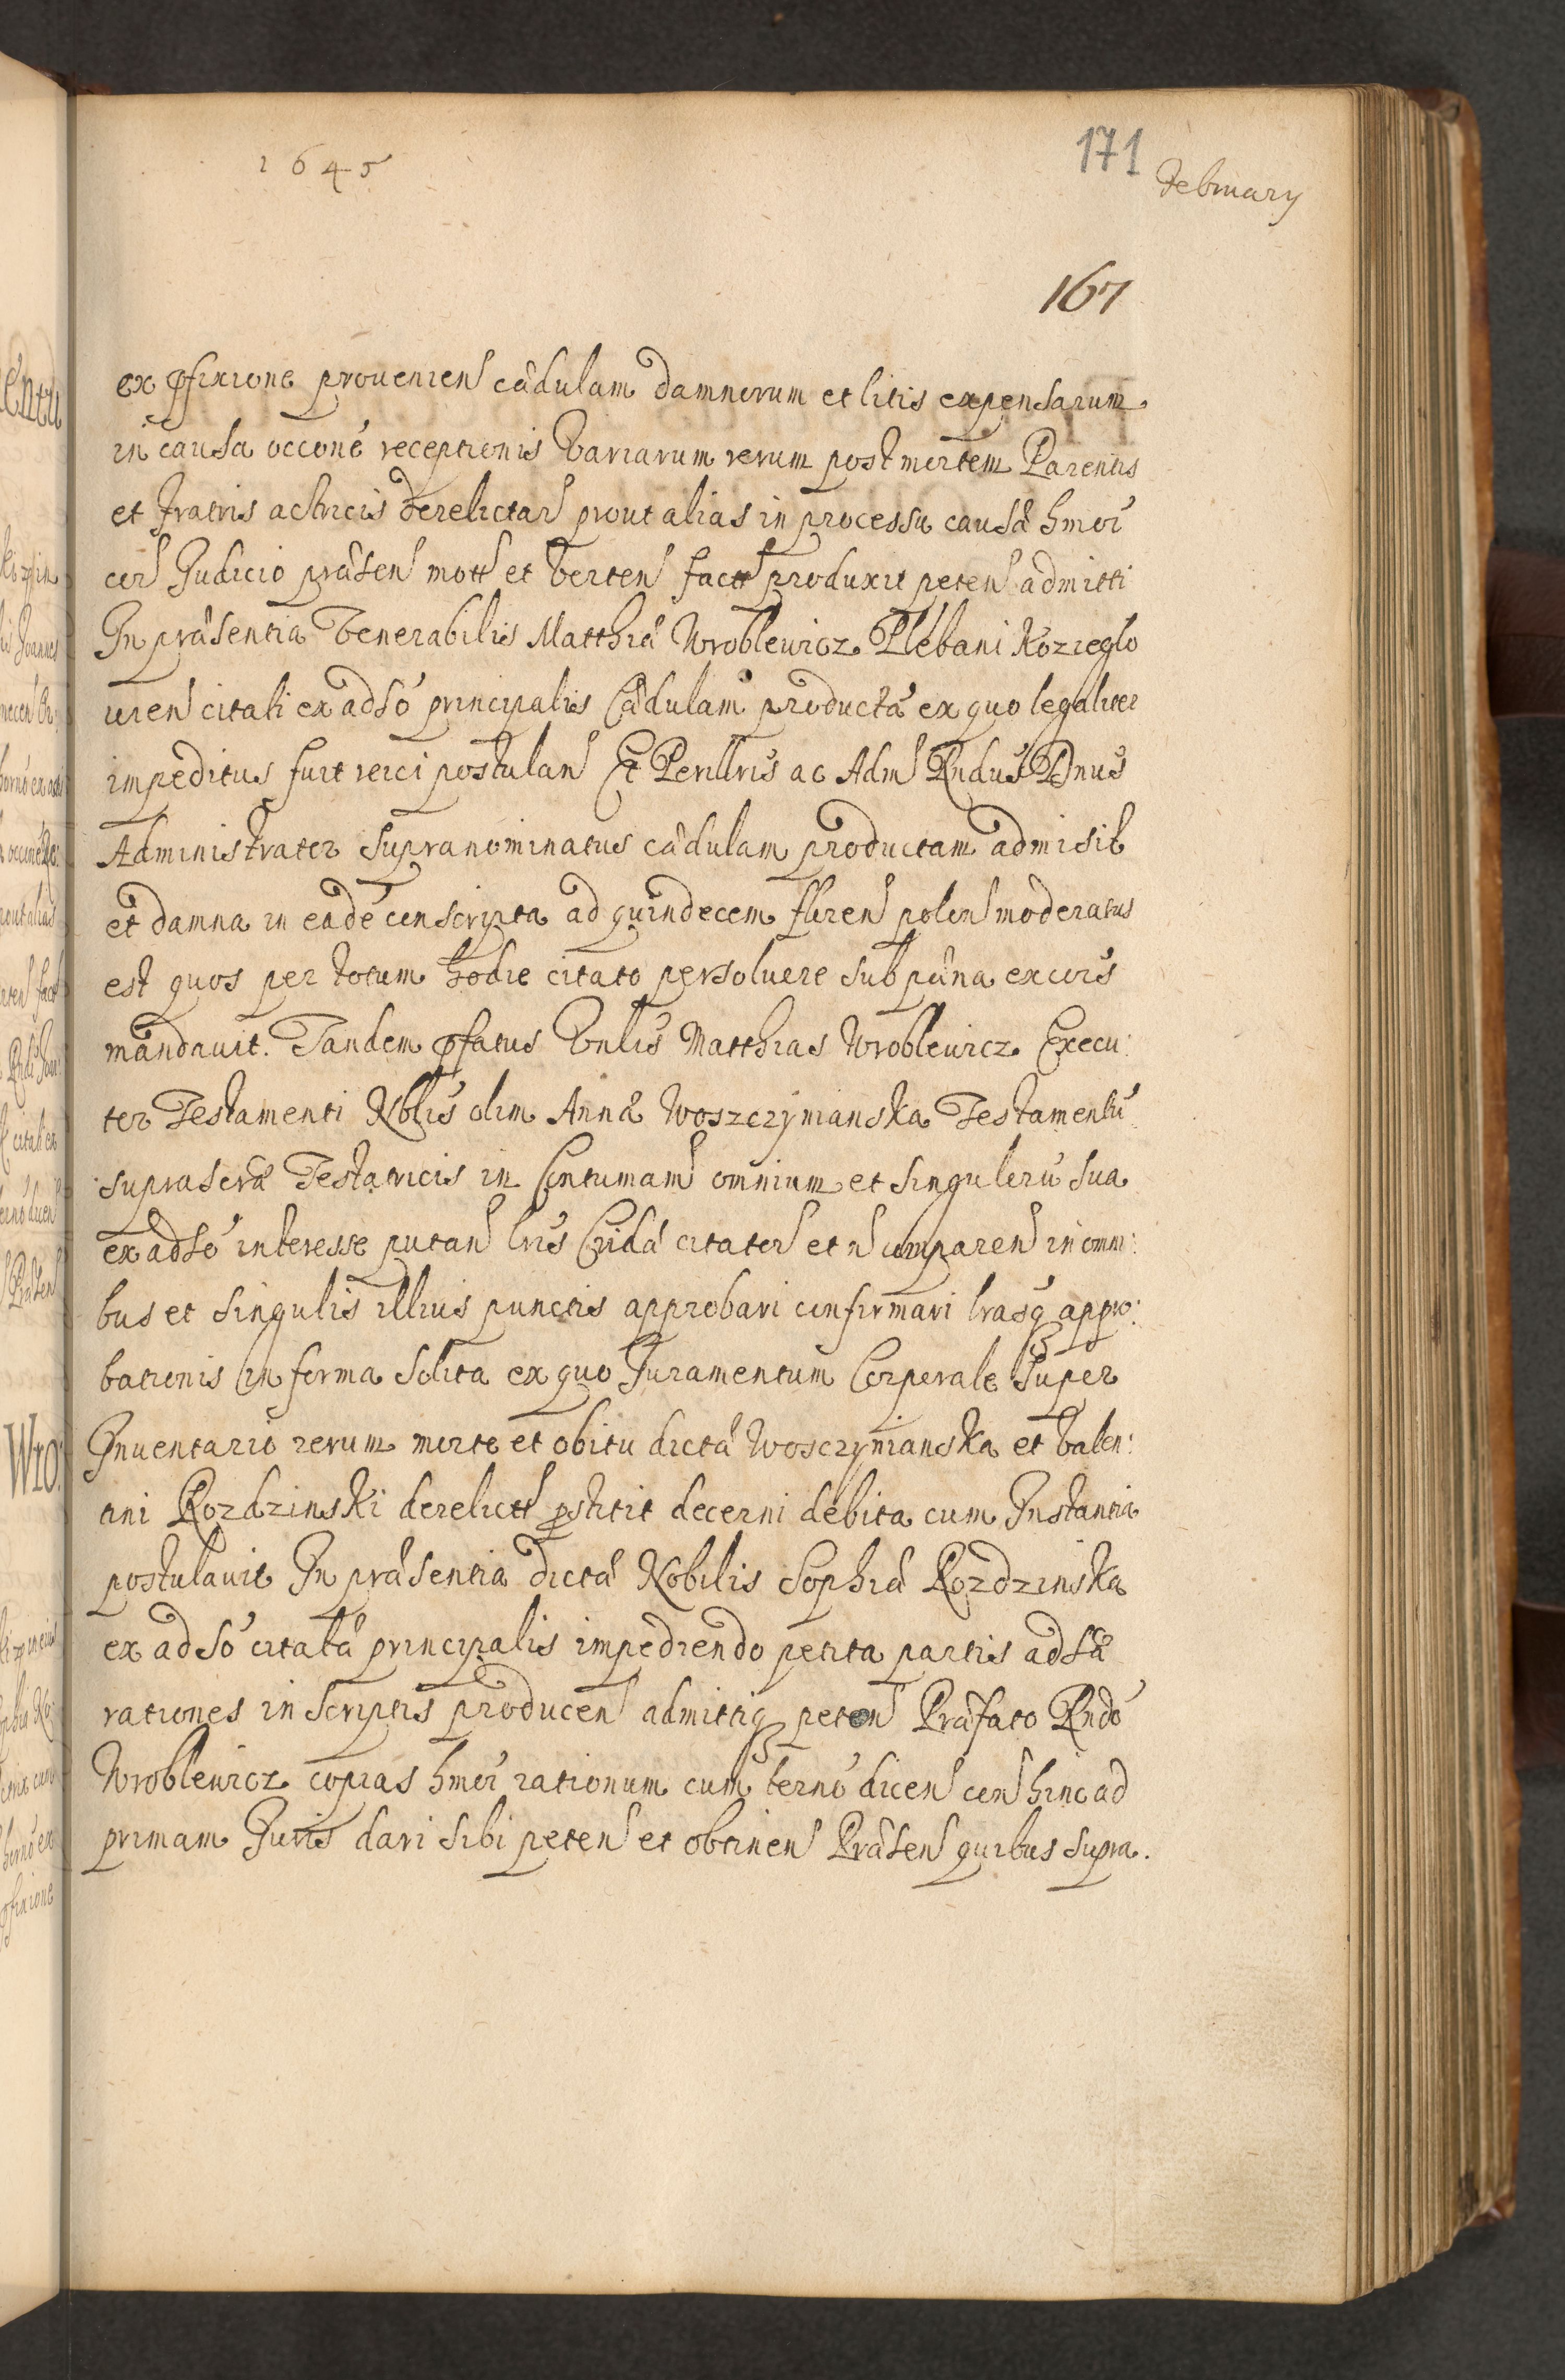 1645
171
February
167
ex pfixione prouenien cædulam damnorum et litis expensarum
in causa occoné receptionis variarum rerum post mortem Parentis
et fratris actricis derelictar prout alias in processu causæ hmoi
cor Judicio præsen mott et verten fact produxit peten admitti
In præsentia Venerabilis Matthiæ Wroblewicz Plebani Kozieglo
uien citati ex adso principalis Cædulam productā ex quo legaliter
impeditus fuit reici postulan Et Perillris ac Adm Rndus Dnus
Administrator supranominatus cædulam productam admisit
et damna in eadē conscripta ad quindecem floren polon moderatus
est quos per totum hodie citato persoluere sub pæna excois
mandauit. Tandem pfatus Vnlis Matthias Wroblewicz Execu:
tor Testamenti Nblis olim Annæ Woszczynianska Testamentū
suprascræ Testatricis in Contumam omnium et singulorū sua
ex adso interesse putan lris Cridæ citator et n comparen in omni:
bus et singulis illius punctis approbari confirmari lrasq appro:
bationis in forma solita ex quo Juramentum Corporale super
Inuentario rerum morte et obitu dictæ Wosczynianska et Valen:
tini Rozdzinski derelictt pstitit decerni debita cum Instantia
postulauit In præsentia dictæ Nobilis Sophiæ Rozdzinska
ex adso citatæ principalis impediendo petita partis adsæ
rationes in scriptis producen admittiq peten Præfato Rndo
Wroblewicz copias hmoi rationum cum termo dicen con hinc ad
primam Juris dari sibi peten et obtinen Præsen quibus supra.